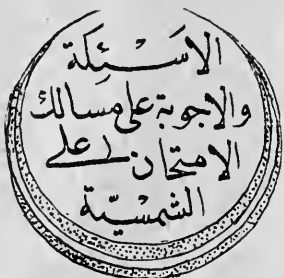 الاسئلة
والاجوبة على مسالك
الامتحان على
الشمسية